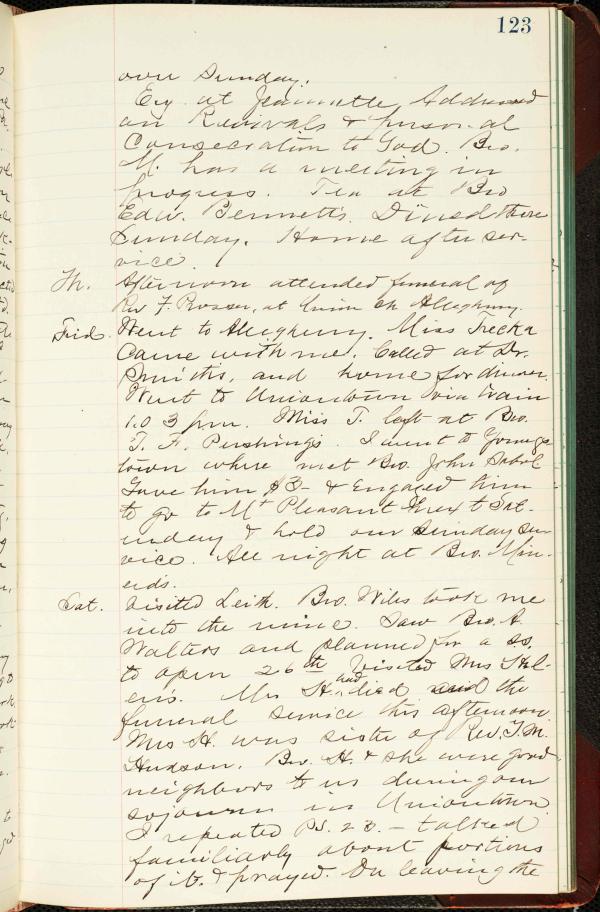 123
over Sunday.
Evg. at Jeannette, Addressed
on Revivals & personal
Consecration to God. Bro.
M. has a meeting in
progress. Tea at Bro
Edw. Bennett's. Dined there
Sunday. Home after ser-
vice.
Th. Afternoon attended funeral of
Rev F. Rosser, at Union Ch Allegheny.
Frid. Went to Allegheny. Miss Trecka
Came with me. Called at Dr.
Smith's, and home for dinner.
Went to Uniontown via train
1.03 pm. Miss T. left at Bro.
T. F. Pershing's. I went to Youngs-
town where met Bro. John Sabol
Gave him $3- & Engaged him
to go to Mt Pleasant next Sat-
urday & hold our Sunday ser-
vice. All night at Bro.
Sat. Visited Leith. Bro. Wiles took me
into the mine. Saw Bro. A.
Walters and planned for a S.S.
to open 26th Visited Mrs
Mrs H. and the
funeral service this afternoon
Mrs H. was sister of Rev. T. M.
Hudson. Bro. H. & she were good
neighbors to us during our
sojourn in Uniontown.
I repeated Ps. 23. - talked
familiarly about portions
of it. & prayed. On leaving the